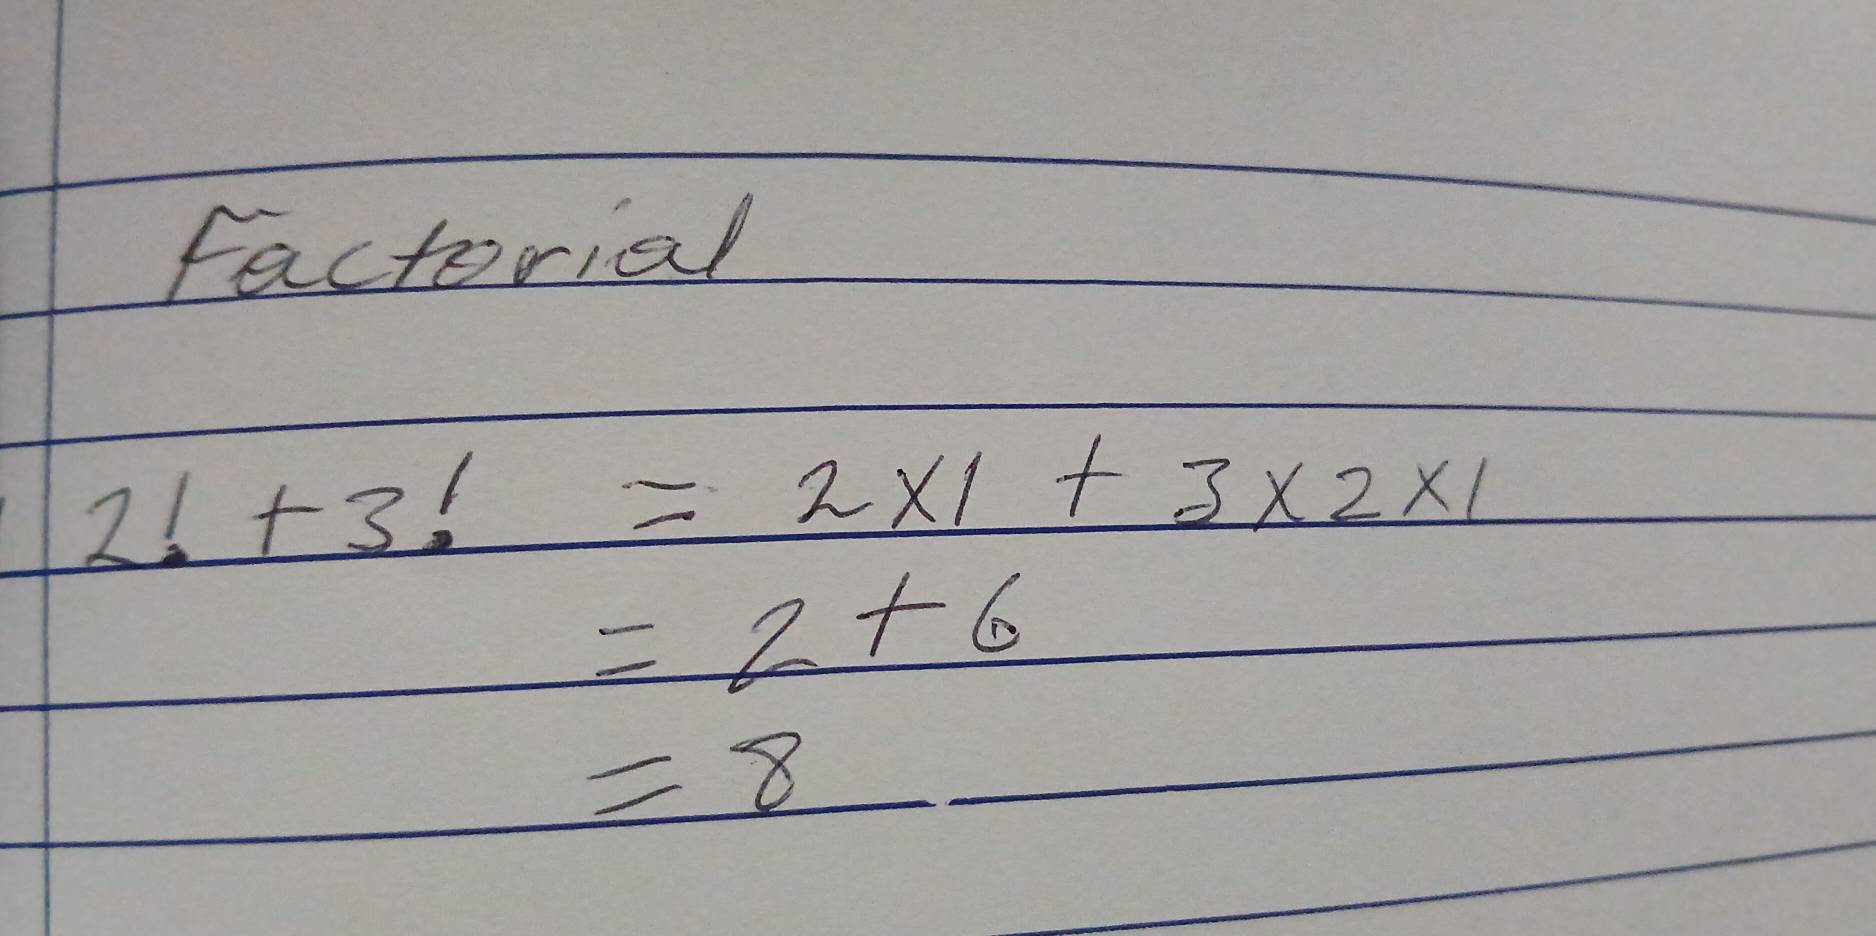 Factorial
2! + 3! = 2x1 + 3x2x1
= 2 + 6
= 8